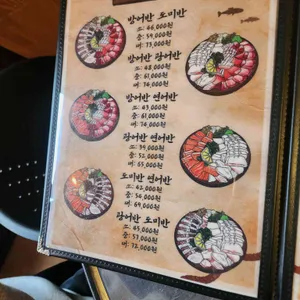 방어반 도미반
소: 46,000원
중: 59,000원
대: 73,000원
방어반 광어반
소: 48,000원
중: 61,000원
대: 76,000원
방어반 연어반
소: 49,000원
중: 61,000원
대: 76,000원
광어반 연어반
소: 39,000원
중: 52,000원
대: 65,000원
도미반 연어반
소: 42,000원
중: 56,000원
대: 69,000원
광어반 도미반
소: 45,000원
중: 57,000원
대: 72,000원